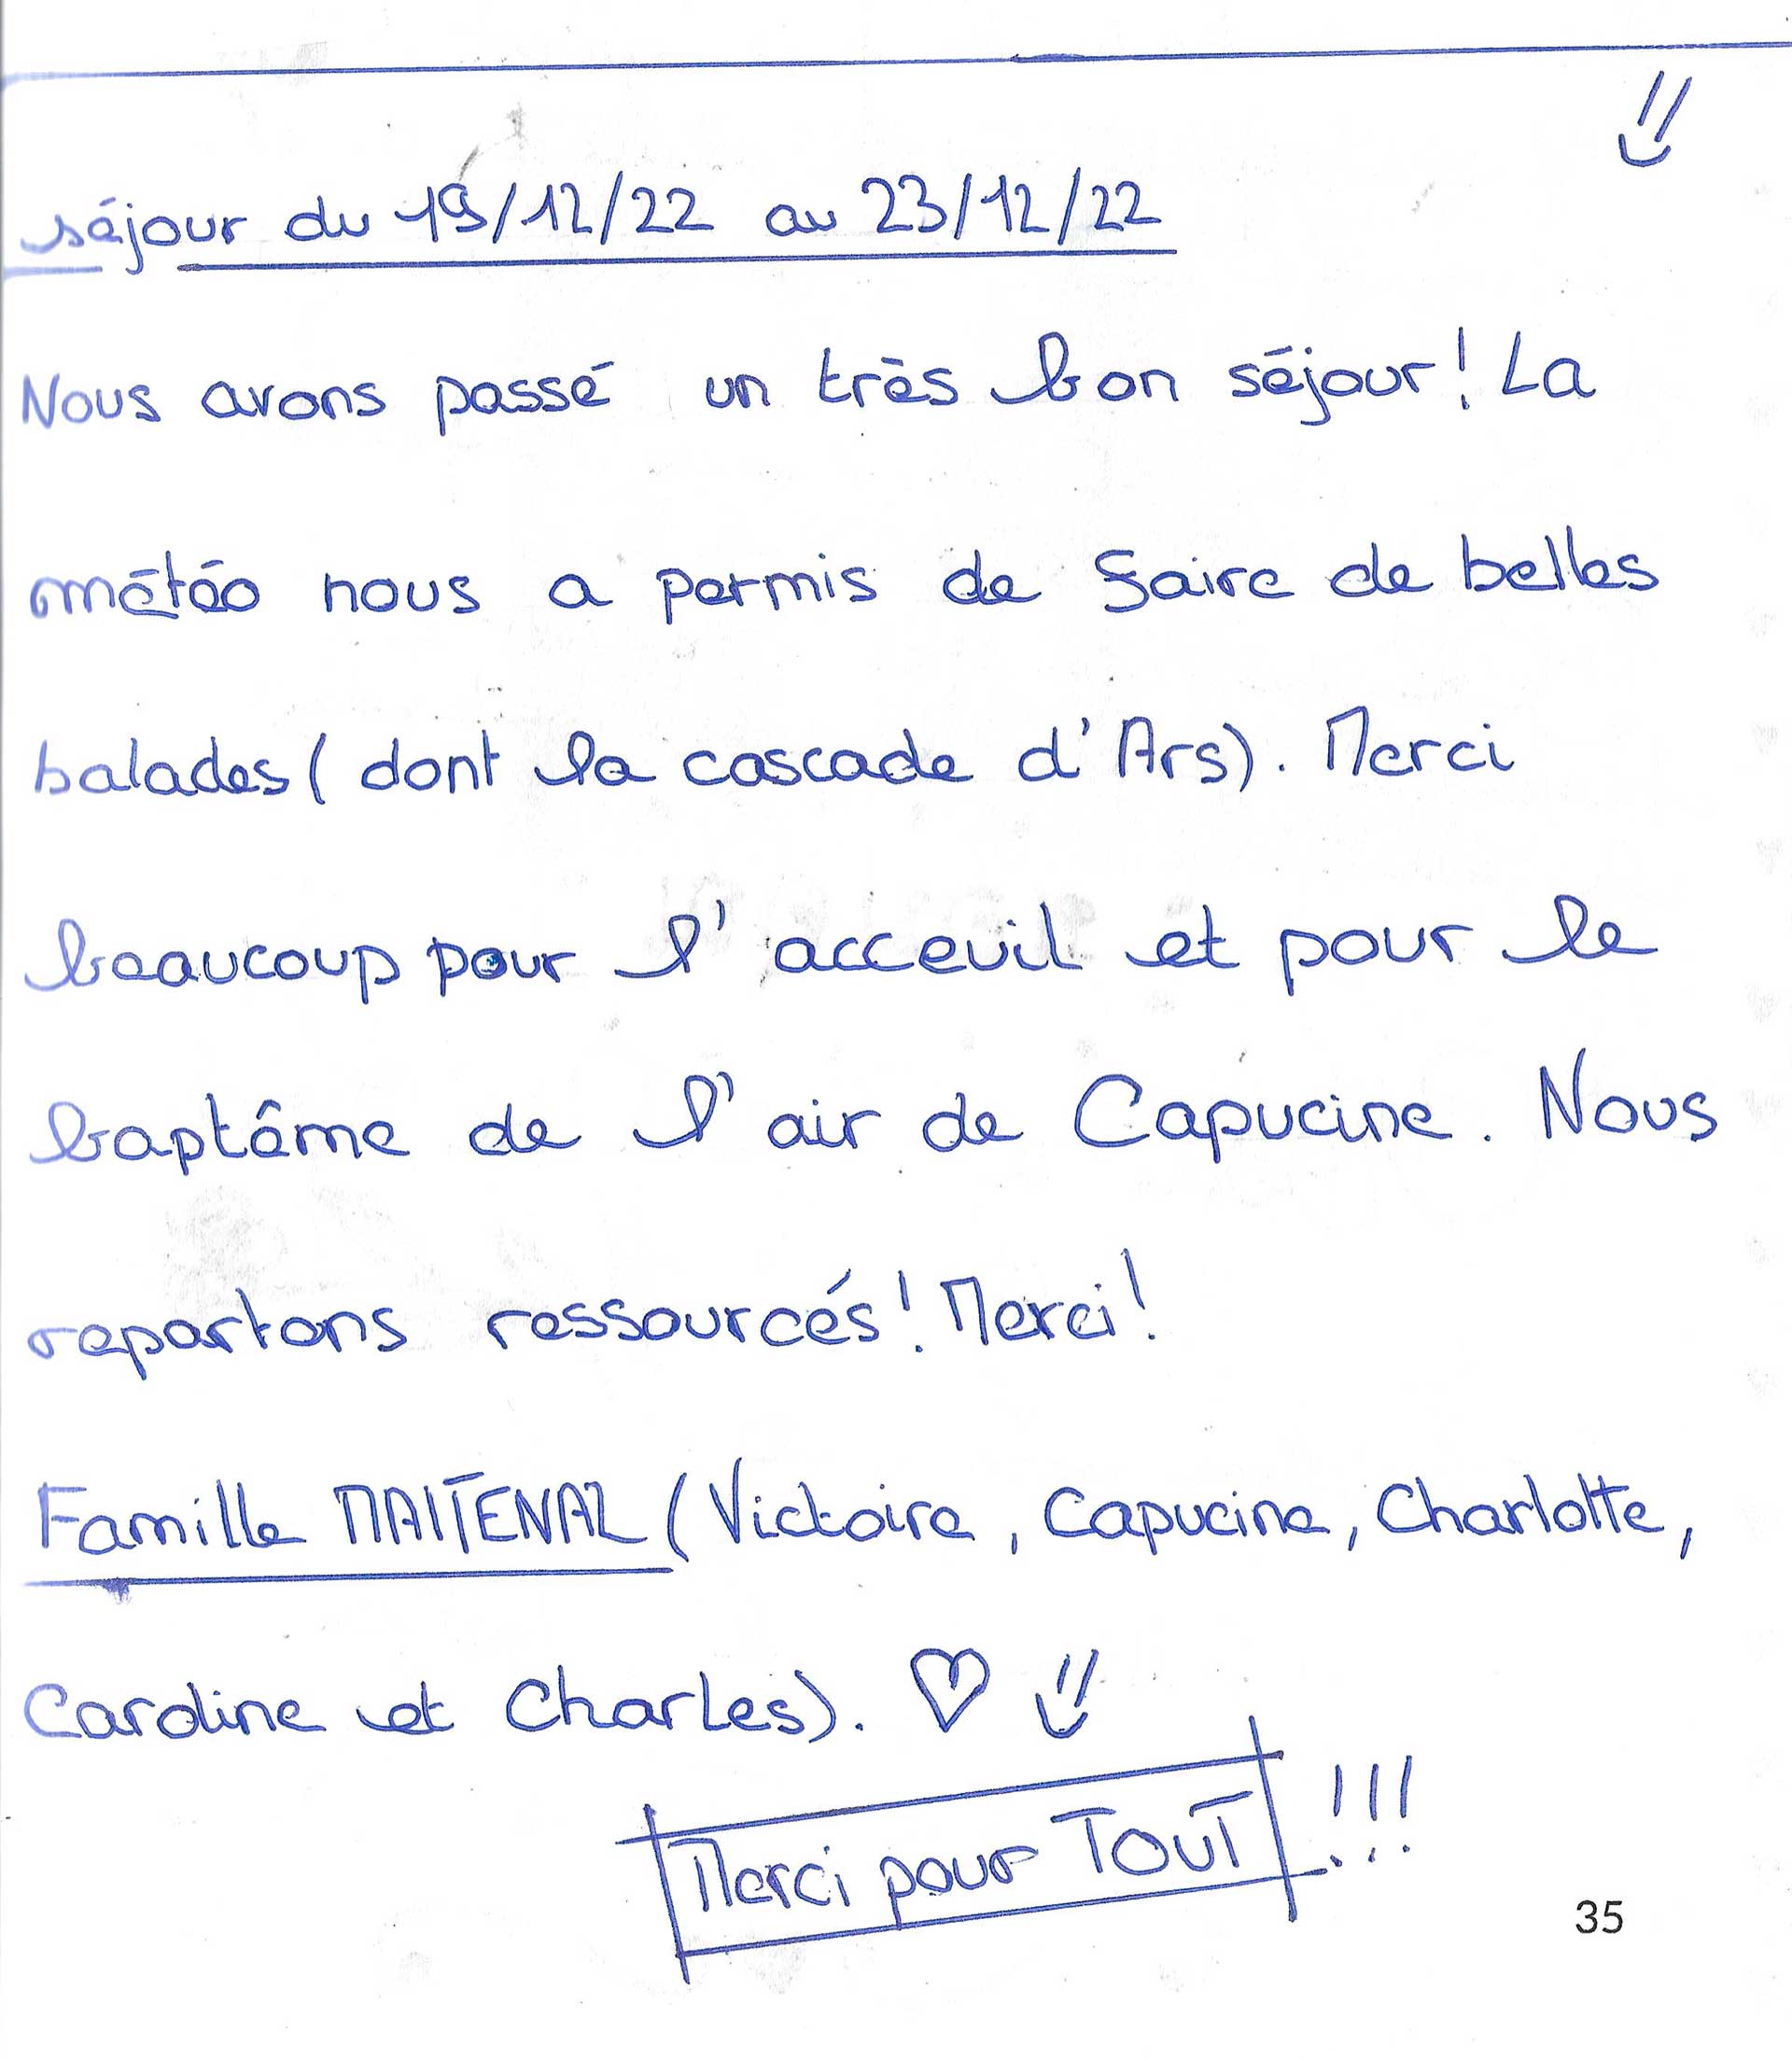 séjour du 19/12/22 au 23/12/22
Nous avons passé un très bon séjour! La
météo nous a permis de faire de belles
balades (dont la cascade d'Ars). Merci
beaucoup pour l'acceuil et pour le
baptême de l'air de Capucine. Nous
repartons ressourcés! Merci!
Famille MAITENAZ (Victoire, Capucine, Charlotte,
Caroline et Charles). ♡
Merci pour TOUT !!!
35